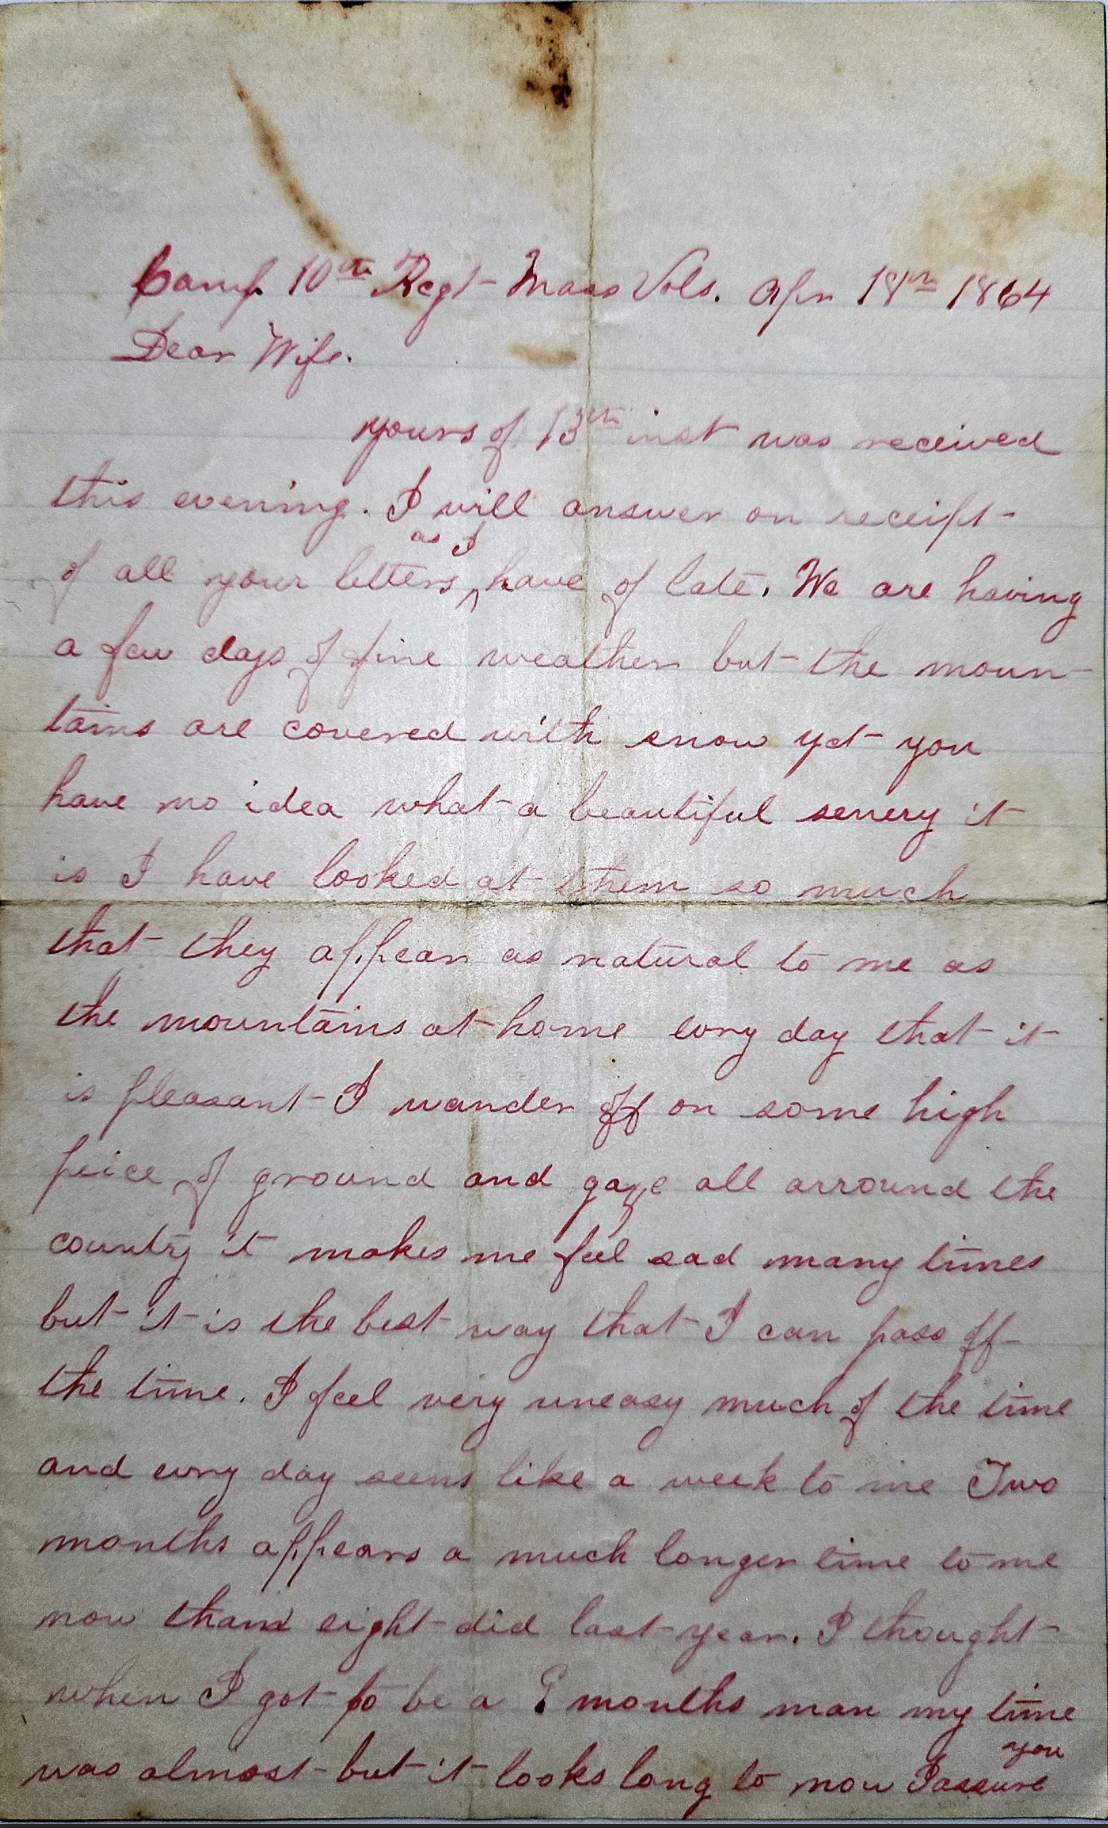 Camp. 10th Regt Mass Vols. Apr 18th 1864
Dear Wife.
yours of 13th inst was received
this evening. I will answer on receipt
of all your letters as I have of late. We are having
a few days of fine weather but the moun-
tains are covered with snow yet you
have no idea what a beautiful senery it
is I have looked at them so much
that they appear as natural to me as
the mountains at home evry day that it
is pleasant I wander off on some high
peice of ground and gaze all arround the
country it makes me feel sad many times
but it is the best way that I can pass off
the time. I feel very uneasy much of the time
and evry day seems like a week to me Two
months appears a much longer time to me
now than eight did last year. I thought
when I got to be a months man my time
was almost but it looks long to now I assure you